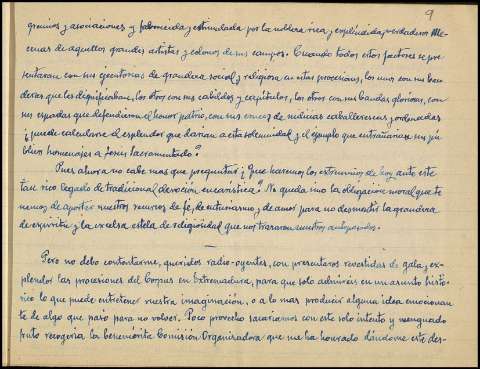 9
gremios y asociaciones y fomentada y estimulada por la nobleza rica y espléndida, verdaderos Me-
cenas de aquellos grandes artistas y colonos de sus campos. Cuando todos estos factores se pre-
sentaran con sus ejecutorias de grandeza social y religiosa en estas procesiones, los unos con sus ban-
deras que les dignificaban, los otros con sus cabildos y capítulos, los otros con sus bandas gloriosas, con
sus espadas que defendieron el honor patrio, con sus cruces de milicias caballerescas y ordenadas
¿puede calcularse el esplendor que darían a esta solemnidad y el ejemplo que entrañaran sus pú-
blicos homenajes a Jesús Sacramentado?
Pues ahora no cabe mas que preguntar: ¿Que haremos los extremeños de hoy ante este
tan rico legado de tradicional devoción eucarística? No queda sino la obligación moral que te-
nemos de aportar nuestros recursos de fé, de entusiasmo y de amor para no desmentir la grandeza
de espíritu y la excelsa estela de religiosidad que nos trazaron nuestros antepasados.
Pero no debo contentarme, queridos radio-oyentes, con presentaros revestidas de gala y ex-
plendor las procesiones del Corpus en Extremadura, para que solo admiréis en un asunto histó-
rico lo que puede entretener vuestra imaginación, o a lo mas producir alguna idea emocionan-
te de algo que pasó para no volver. Poco provecho sacaríamos con este solo intento y menguado
fruto recogería la benemérita Comisión Organizadora que me ha honrado dándome este des-